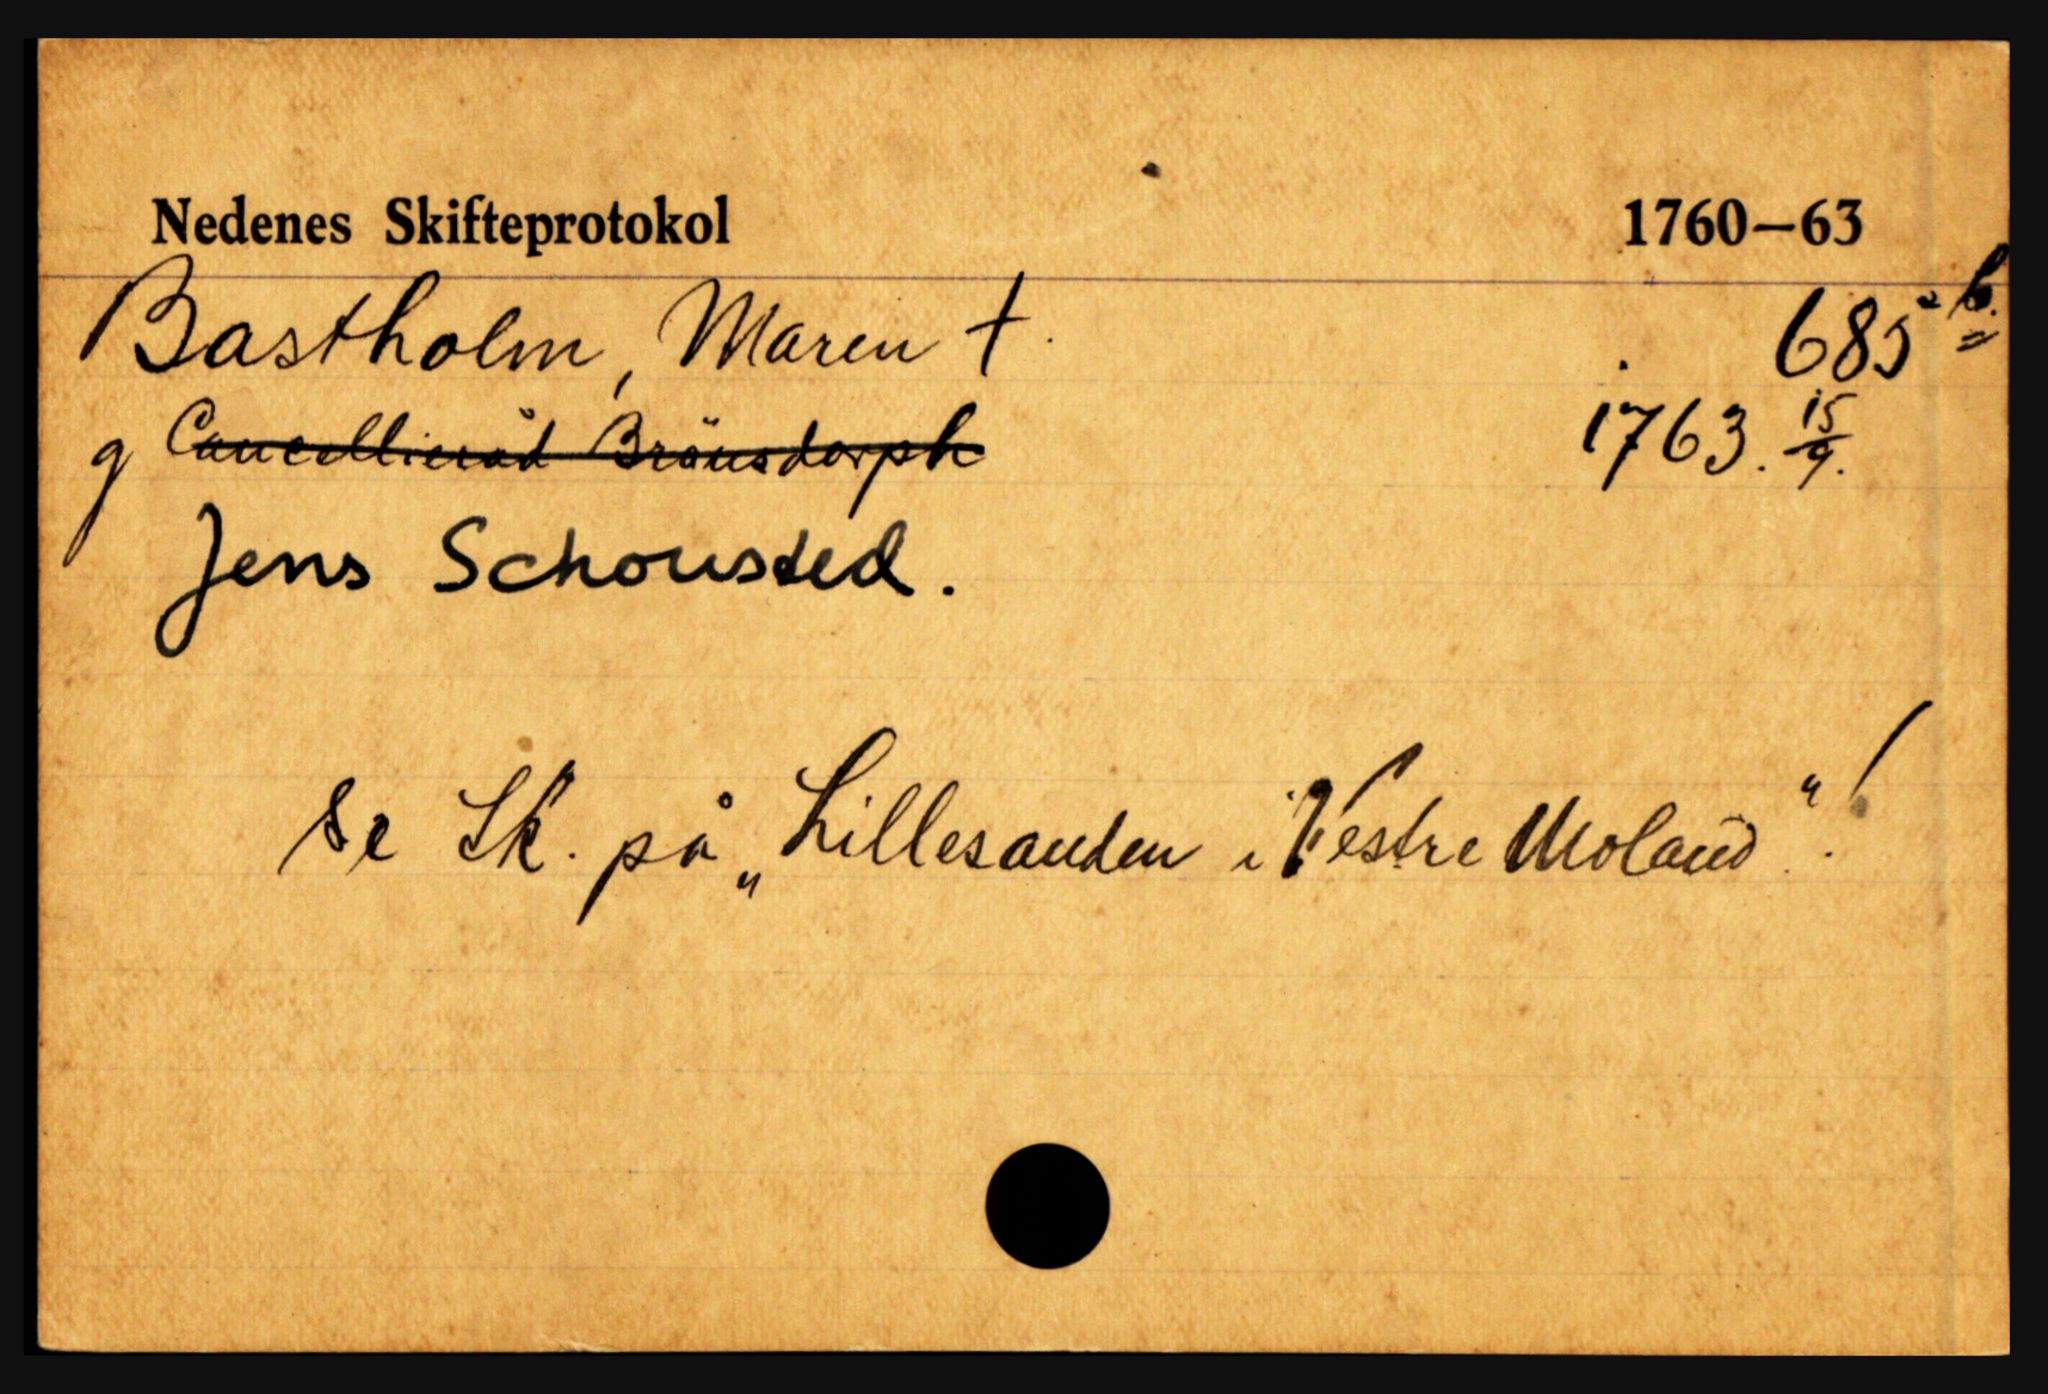 Nedenes Skifteprotokol 1760—63
Bastholm, Maren † 685 b.
g Cancelliråd Brönsdorph 1763. 15/9.
Jens Schousted.
se Sk. på „Lillesanden i Vestre Moland"!